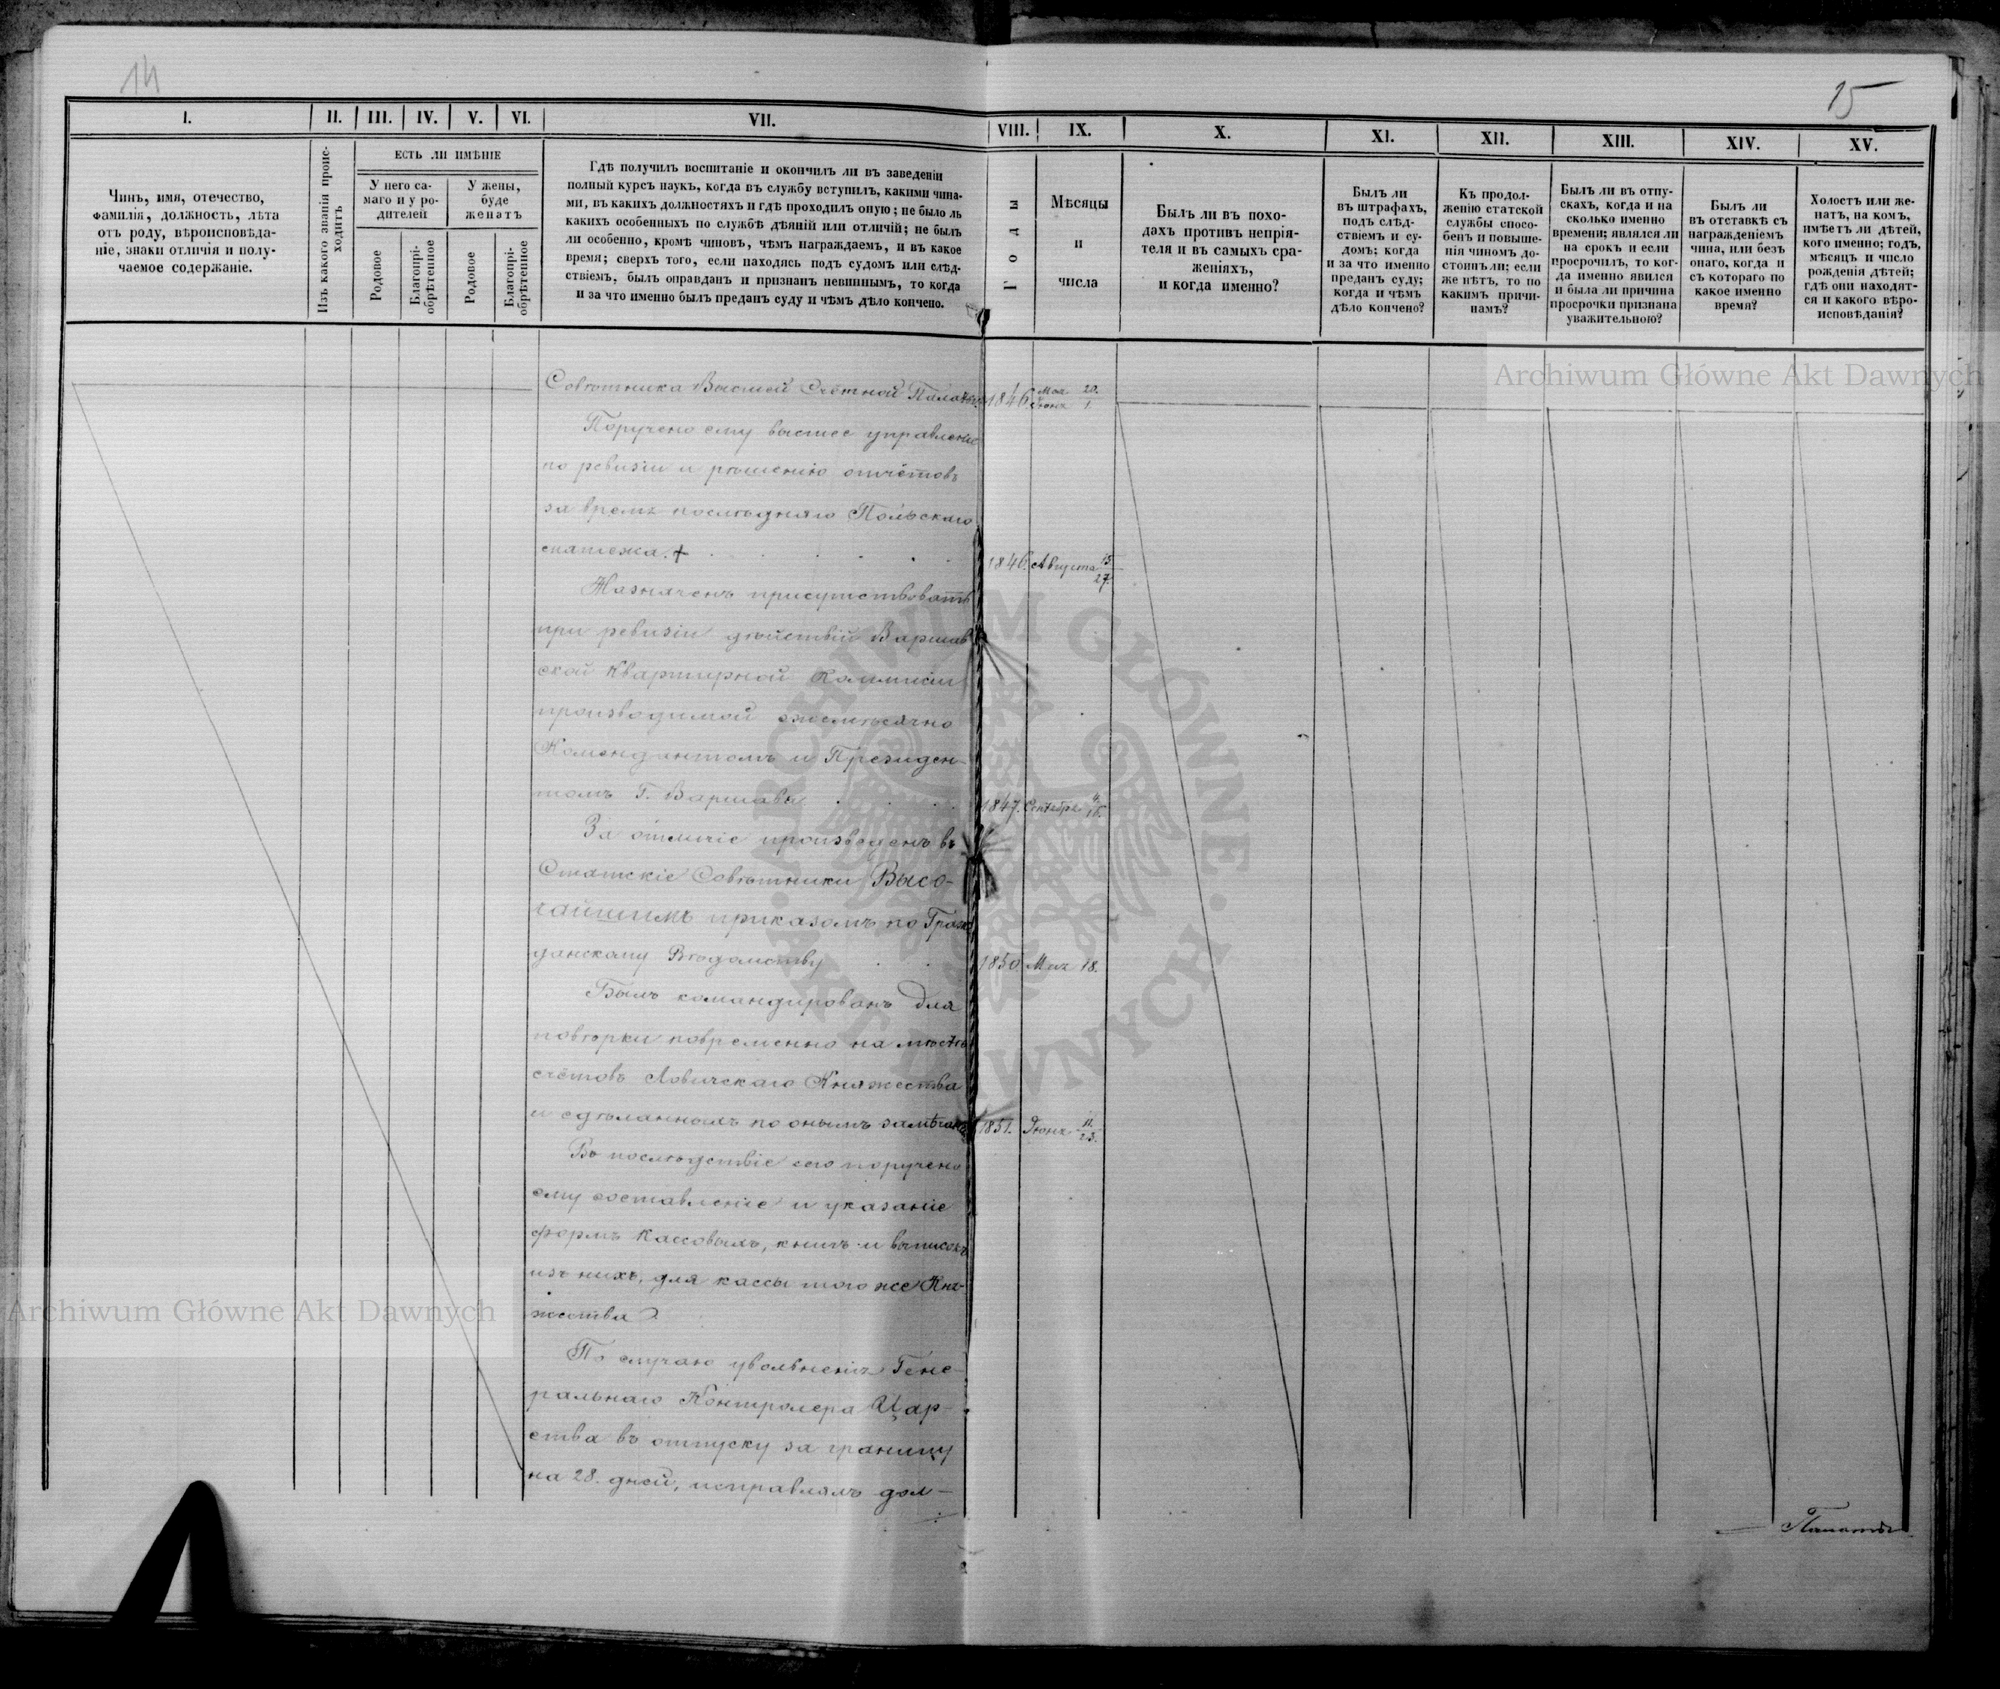 14
15
I.
II.
III.
IV.
V.
VI.
VII.
VIII.
IX.
X.
XI.
XII.
XIII.
XIV.
XV.
Чинъ, имя, отечество,
фамилія, должность, лѣта
отъ роду, вѣроисповѣда-
ніе, знаки отличія и полу-
чаемое содержаніе.
Изъ какого званія проис-
ходитъ
ЕСТЬ ЛИ ИМѢНІЕ
У него са-
маго и у ро-
дителей
У жены,
буде
женатъ
Родовое
Благопрі-
обрѣтенное
Родовое
Благопрі-
обрѣтенное
Гдѣ получилъ воспитаніе и окончилъ ли въ заведеніи
полный курсъ наукъ, когда въ службу вступилъ, какими чина-
ми, въ какихъ должностяхъ и гдѣ проходилъ оную; не было ль
какихъ особенныхъ по службѣ дѣяній или отличій; не былъ
ли особенно, кромѣ чиновъ, чѣмъ награждаемъ, и въ какое
время; сверхъ того, если находясь подъ судомъ или слѣд-
ствіемъ, былъ оправданъ и признанъ невиннымъ, то когда
и за что именно былъ преданъ суду и чѣмъ дѣло кончено.
Годы
Мѣсяцы
и
числа
Былъ ли въ похо-
дахъ противъ непрія-
теля и въ самыхъ сра-
женіяхъ,
и когда именно?
Былъ ли
въ штрафахъ,
подъ слѣд-
ствіемъ и су-
домъ; когда
и за что именно
преданъ суду;
когда и чѣмъ
дѣло кончено?
Къ продол-
женію статской
службы спосо-
бенъ и повыше-
нія чиномъ до-
стоинъ ли; если
же нѣтъ, то по
какимъ причи-
намъ?
Былъ ли въ отпу-
скахъ, когда и на
сколько именно
времени; являлся ли
на срокъ и если
просрочилъ, то ког-
да именно явился
и была ли причина
просрочки признана
уважительною?
Былъ ли
въ отставкѣ съ
награжденіемъ
чина, или безъ
онаго, когда и
съ котораго по
какое именно
время?
Холостъ или же-
натъ, на комъ,
имѣетъ ли дѣтей,
кого именно; годъ,
мѣсяцъ и число
рожденія дѣтей;
гдѣ они находят-
ся и какого вѣро-
исповѣданія?
Совѣтника Высшей Счётной Палаты 1846 Мая 20. Іюня 1.
Поручено ему высшее управленіе
по ревизіи и рѣшенію отчётовъ
за время послѣдняго Польскаго
мятежа. + 1846. Августа 15/27.
Назначенъ присутствовать
при ревизіи дѣйствій Варшав
ской Квартирной Коммисіи
производимой ежемѣсячно
Комендантомъ и Президен-
томъ Г. Варшавы 1847. Сентября 4/16.
За отличіе произведенъ въ
Статскіе Совѣтники Высо-
чайшимъ приказомъ по Граж
данскому Вѣдомству 1850 Мая 18.
Былъ командированъ для
повѣрки повременно на мѣстѣ
счётовъ Ловичскаго Княжества
и сдѣланнымъ по онымъ 1851. Іюня 11/23.
Въ послѣдствіе сего поручено
ему составленіе и указаніе
формъ кассовымъ, книгъ и выписокъ
изъ нихъ, для кассы того же Кня-
жества
По случаю увольненія Гене-
ральнаго Контролера Цар-
ства въ отпуску за границу
на 28. дней, исправлялъ дол-
Archiwum Główne Akt Dawnych
Archiwum Główne Akt Dawnych
ARCHIWUM GŁÓWNE AKT DAWNYCH